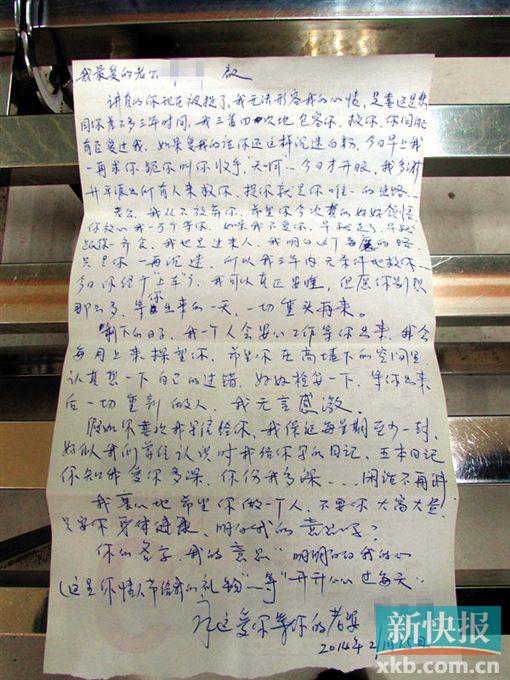 我最爱的老公 启
讲真的你现在被捉了,我无法形容我的心情,是喜还是悲
同你差不多三年时间,我三番四次地包容你、救你,你同能
有否爱过我,如果爱我的话你还这样沉迷白粉,今日早上我
一再求你跪你叫你收手,天啊…今日才开眼,我多谢
所有人来救你,捉你就是你唯一的出路…
老公,我从不放弃你,希望你今次真的好好
你放心我一万个等你,如果我不爱你,早就走了,早就
我也是过来人,我明白这个毒的
只是你一再沉迷,所以我三年内无条件地救你…
今日你终于"上车"了,我可以真正安睡,但愿你别想
那么多,等你出来的一天,一切重头再来。
剩下的日子,我一个人会安心工作等你出来,我会
每月上来探望你,希望你在高墙下的空间里
认真想一下自己的过错,好好检讨一下,等你出来
后一切重新做人,我无言感激。
假如你喜欢我写信给你,我保证每星期至少一封,
好似我们前往认识时我给你写的日记,五本日记
你知我爱你多深,你伤我多深……闲话不再讲
我衷心地希望你做一个人,不要你大富大贵
只要你身体健康,明白我的意思吗?
你的名字,我的意思"明明白白我的心
(这是你情人节给我的礼物"…等"开开心心过每天…
永远爱你等你的老婆
2014年2月15日
新快报
xkb.com.cn